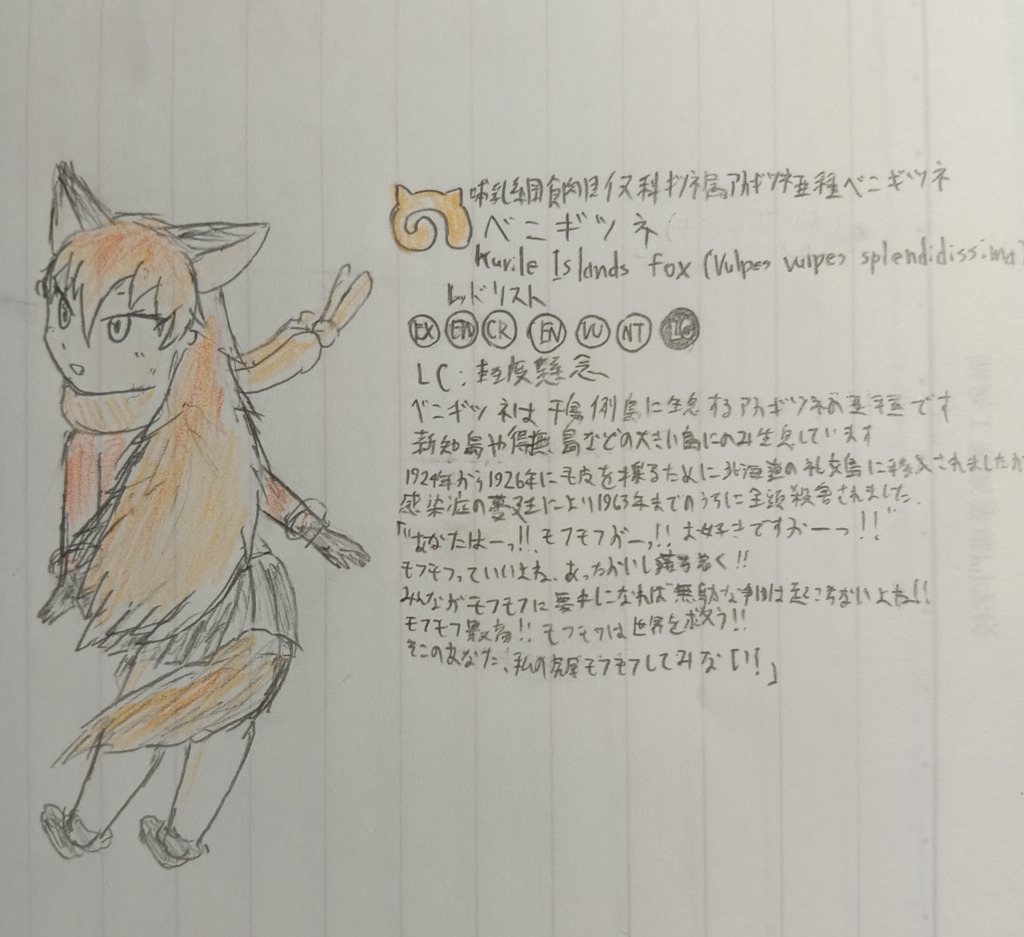 哺乳綱食肉目イヌ科キツネ属アカギツネ亜種ベニギツネ
ベニギツネ
Kurile Islands fox (Vulpes vulpes splendidissima
レッドリスト
EX EW CR EN VU NT LC
LC:軽度懸念
ベニギツネは千島列島に生息するアカギツネの亜種です
新知島や得撫島などの大きい島にのみ生息しています
1924年から1926年に毛皮を採るために北海道の礼文島に移入されましたが
感染症の蔓延により1963年までのうちに全頭殺害されました.
「"あなたはーっ!!、モフモフがーっ!! お好きですかーーっ!!"
モフモフっていいよね、あったかいし落ち着く!!
みんながモフモフに夢中になれば無駄な争いは起こらないよね!!
モフモフ最高!! モフモフは世界を救う!!
そこのあなた、私の尻尾モフモフしてみない!?」